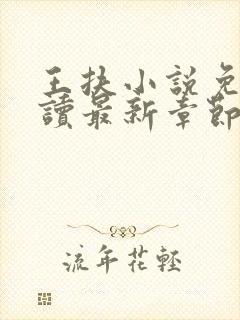 王扶小說免
讀最新章節
流年花輕